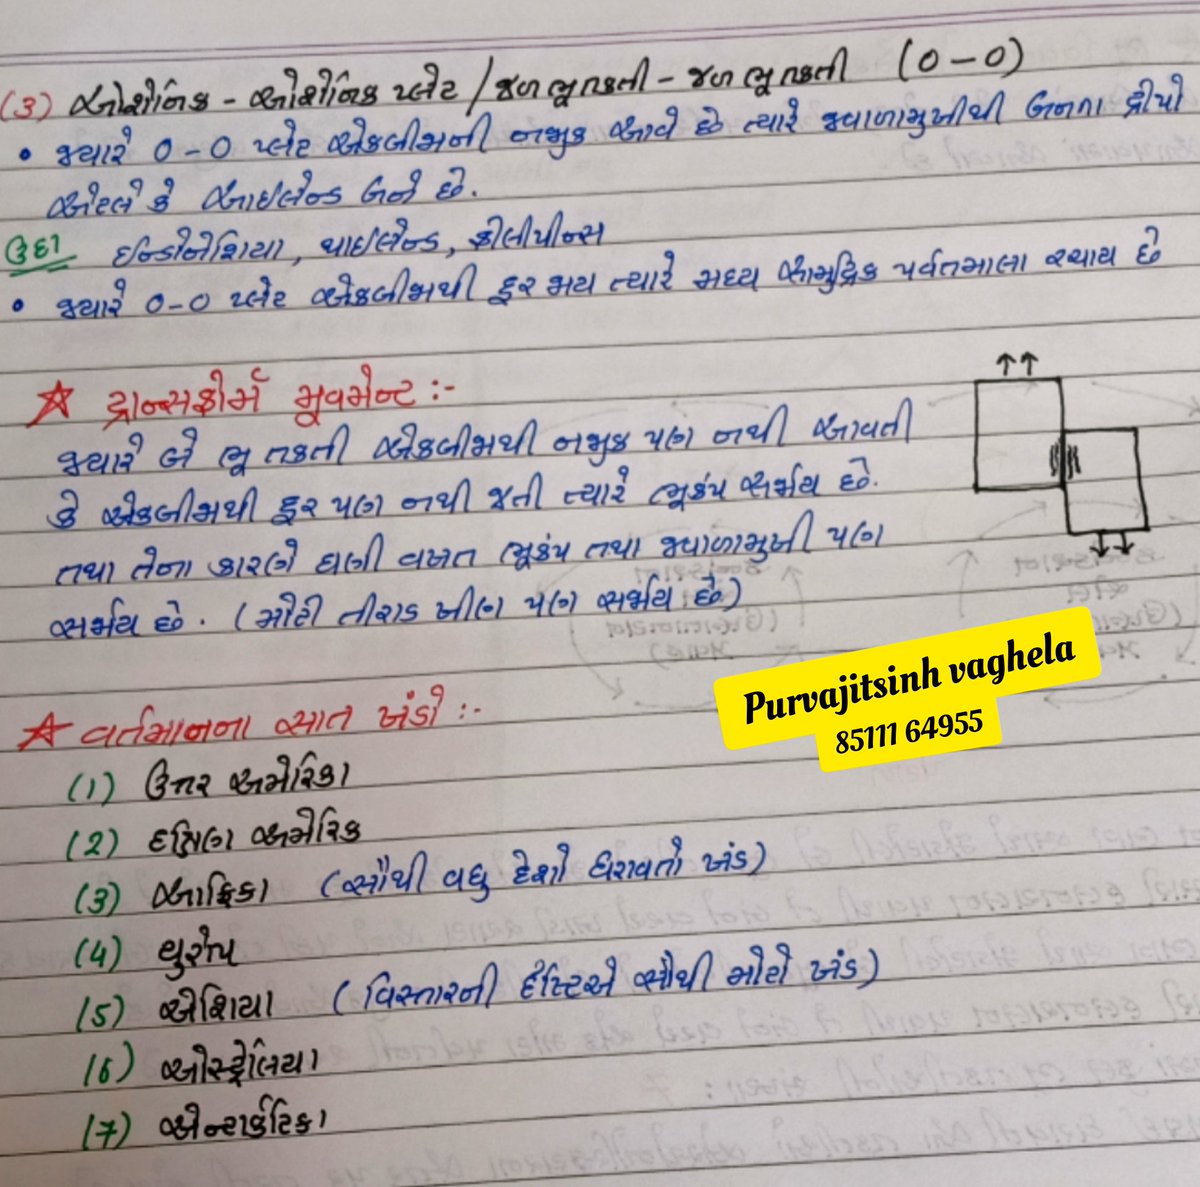 (3) ઓશેનિક - ઓશેનિક પ્લેટ / જળ ભૂતકતી - જળ ભૂતકતી (O-O)
• જ્યારે O-O પ્લેટ એકબીજાની નજીક આવે છે ત્યારે જ્વાળામુખીથી બનતા દ્વીપો
એટલે કે આઇલેન્ડ બને છે.
ઉદા ઈન્ડોનેશિયા, થાઈલેન્ડ, ફીલીપીન્સ
• જ્યારે O-O પ્લેટ એકબીજાથી દૂર જાય ત્યારે મધ્ય સામુદ્રિક પર્વતમાલા રચાય છે
☆ ટ્રાન્સફોર્મ મૂવમેન્ટ :-
જ્યારે બે ભૂ તકતી એકબીજાથી નજીક પણ નથી આવતી
કે એકબીજાથી દૂર પણ નથી જતી ત્યારે ભૂકંપ સર્જાય છે.
તથા તેના કારણે ઘણી વખત ભૂકંપ તથા જ્વાળામુખી પણ
સર્જાય છે. (મોટી તીરાડ ખીણ પણ સર્જાય છે)
Purvajitsinh vaghela
85111 64955
☆ વર્તમાનના સાત ખંડો :-
(1) ઉત્તર અમેરિકા
(2) દક્ષિણ અમેરિક
(3) આફ્રિકા (સૌથી વધુ દેશો ધરાવતો ખંડ)
(4) યુરોપ
(5) એશિયા (વિસ્તારની દૃષ્ટિએ સૌથી મોટો ખંડ)
(6) ઓસ્ટ્રેલિયા
(7) એન્ટાર્કટિકા